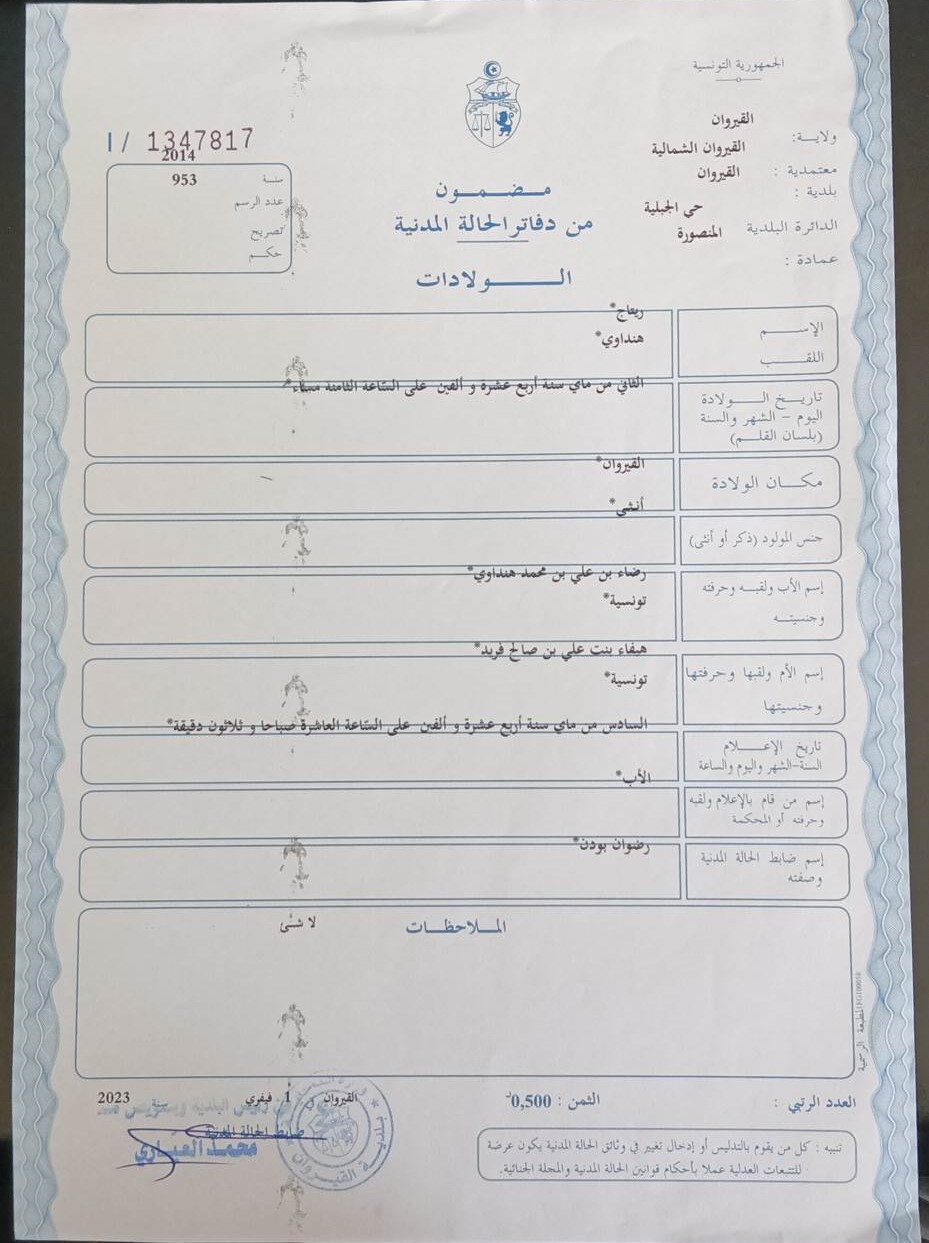 الجمهورية التونسية
ولاية: القيروان
معتمدية : القيروان الشمالية
بلدية : القيروان
الدائرة البلدية حي الجبلية
عمادة : المنصورة
I/ 1347817
سنة 2014
عدد الرسم 953
تصريح
حكم
مضمون
من دفاتر الحالة المدنية
الولادات
الإسم ريعاج*
اللقب هنداوي*
تاريخ الولادة
اليوم - الشهر والسنة
(بلسان القلم)
الثاني من ماي سنة أربع عشرة و ألفين على السّاعة الثامنة مساء*
مكان الولادة القيروان*
جنس المولود (ذكر أو أنثى) أنثى*
إسم الأب ولقبه وحرفته رضاء بن علي بن محمد هنداوي*
وجنسيته تونسية*
إسم الأم ولقبها وحرفتها هيفاء بنت علي بن صالح فريد*
وجنسيتها تونسية*
تاريخ الإعلام
السنة-الشهر واليوم والساعة
السادس من ماي سنة أربع عشرة و ألفين على السّاعة العاشرة صباحا و ثلاثون دقيقة*
إسم من قام بالإعلام ولقبه
وحرفته أو المحكمة
الأب*
إسم ضابط الحالة المدنية
وصفته
رضوان بودن*
الملاحظات
لا شئ
المطبعة الرسمية
العدد الرتبي :
الثمن : 0,500د
القيروان في 1 فيفري سنة 2023
ضابط الحالة المدنية
محمد العياري
القيروان
تنبيه : كل من يقوم بالتدليس أو إدخال تغيير في وثائق الحالة المدنية يكون عرضة
للتتبعات العدلية عملا بأحكام قوانين الحالة المدنية والمجلة الجنائية.